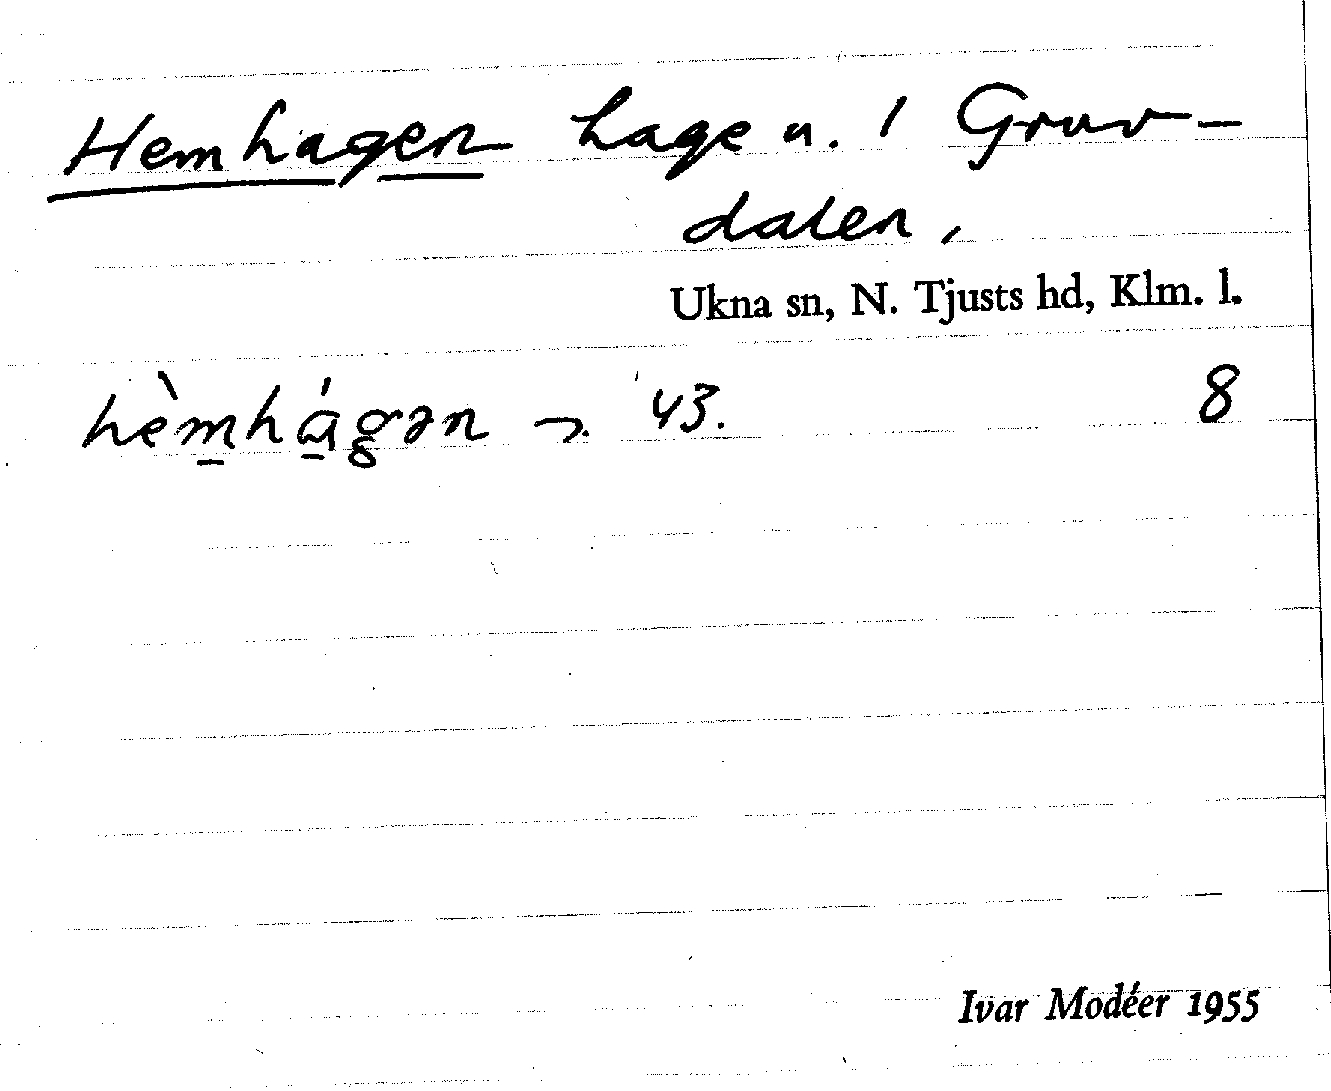 Hemhagen hage u. 1 Gruv-
dalen,
Ukna sn, N. Tjusts hd, Klm. l.
hèm̲há̲gən ¬. '43. 8
Ivar Modéer 1955